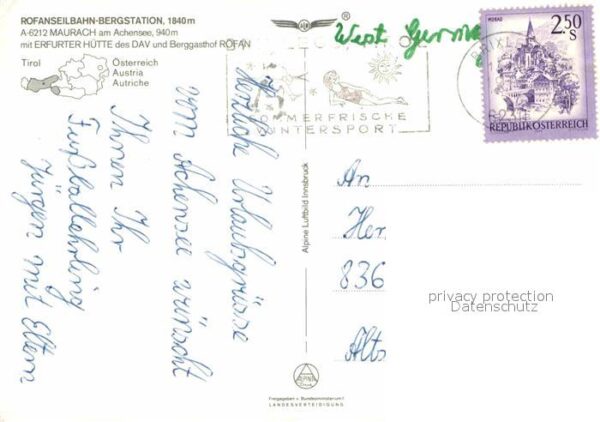 ROFANSEILBAHN-BERGSTATION, 1840 m
A-6212 MAURACH am Achensee, 940m
mit ERFURTER HÜTTE des DAV und Berggasthof ROFAN
Tirol
Österreich
Austria
Autriche
AERO
®
West Germany
SOMMERFRISCHE
WINTERSPORT
BRIXL
6230
MURAU
2.50
S
REPUBLIK ÖSTERREICH
Herzliche Urlaubsgrüsse
vom Achensee wünscht
Ihnen Ihr
Fußballehrling
Jürgen mit Eltern
Alpine Luftbild Innsbruck
An
Her
836
Alts
privacy protection
Datenschutz
ALPINE
Freigegeben v. Bundesministerium f.
LANDESVERTEIDIGUNG